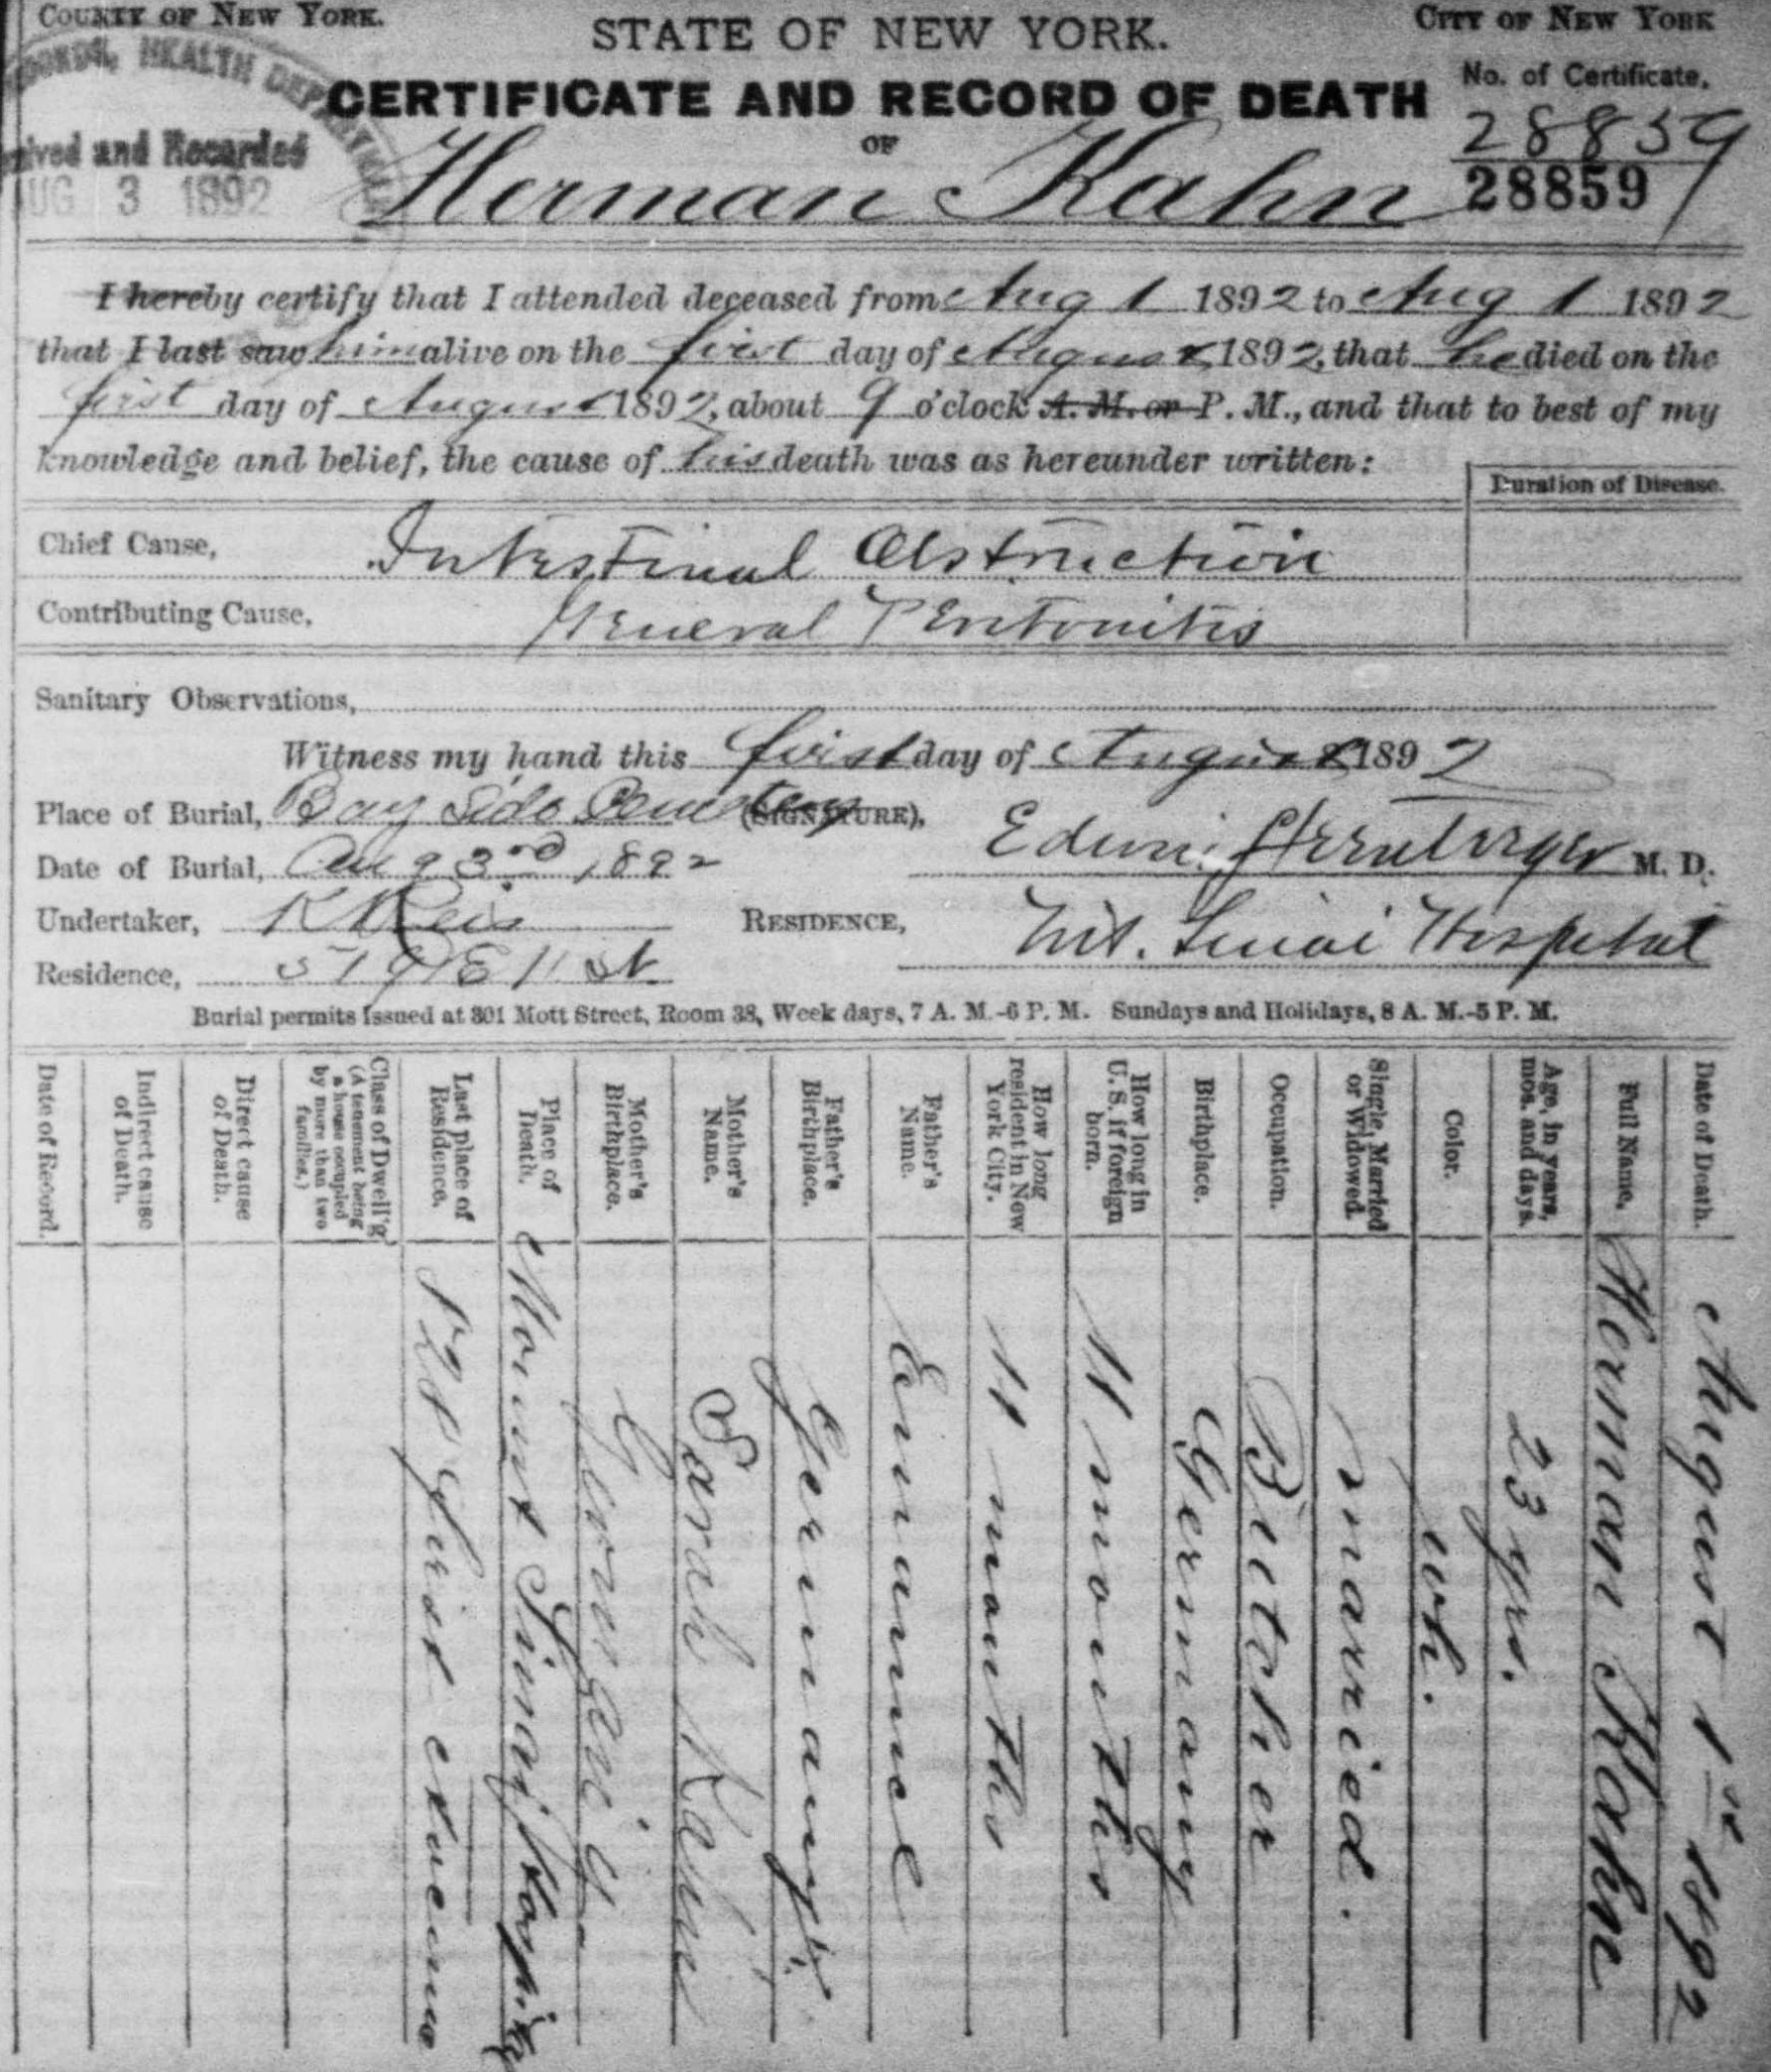 COUNTY OF NEW YORK.
STATE OF NEW YORK.
CITY OF NEW YORK
HEALTH DEPARTMENT
CERTIFICATE AND RECORD OF DEATH
No. of Certificate,
28859
28859
and Recorded
UG 3 1892
OF
Herman Kahn
I hereby certify that I attended deceased from Aug 1 1892 to Aug 1 1892
that I last saw him alive on the first day of August 1892, that he died on the
first day of August 1892, about 9 o'clock A. M. or P. M., and that to best of my
knowledge and belief, the cause of his death was as hereunder written:
Duration of Disease.
Chief Cause, Intestinal Obstruction
Contributing Cause, General Peritonitis
Sanitary Observations,
Witness my hand this first day of August 1892
Place of Burial, Bay Side Cemetery (SIGNATURE),
Edwin Sternberger M. D.
Date of Burial, Aug 3rd 1892
Undertaker, K Reis
RESIDENCE, Mt. Sinai Hospital
Residence, E 11 St
Burial permits issued at 301 Mott Street, Room 38, Week days, 7 A. M.-6 P. M. Sundays and Holidays, 8 A. M.-5 P. M.
Date of Death. August 1st 1892
Full Name. Herman Kahn
Age, in years, mos. and days. 23 yrs.
Color. wh.
Single, Married or Widowed. married.
Occupation. Butcher
Birthplace. Germany
How long in U. S. if foreign born. 11 months
How long resident in New York City. 11 months
Father's Name. Emanuel
Father's Birthplace. Germany.
Mother's Name. Sarah Kahn
Mother's Birthplace. Germany
Place of Death. Mount Sinai Hospital
Last place of Residence. First avenue
Class of Dwell'g (A tenement being a house occupied by more than two families.)
Direct cause of Death.
Indirect cause of Death.
Date of Record.